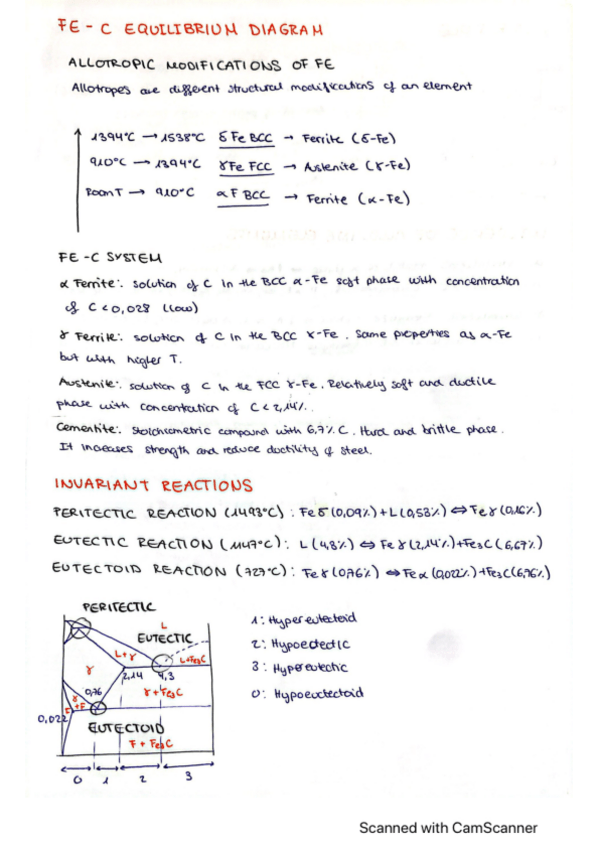 FE - C EQUILIBRIUM DIAGRAM
ALLOTROPIC MODIFICATIONS OF FE
Allotropes are different structural modifications of an element
1394°C → 1538°C δ Fe BCC → Ferrite (δ-Fe)
910°C → 1394°C γFe FCC → Austenite (γ-Fe)
Room T → 910°C α F BCC → Ferrite (α-Fe)
FE-C SYSTEM
α Ferrite: solution of C in the BCC α-Fe soft phase with concentration
of C < 0,028 (low)
γ Ferrite: solution of C in the BCC γ-Fe. Same properties as α-Fe
but with higher T.
Austenite: solution of C in the FCC γ-Fe. Relatively soft and ductile
phase with concentration of C < 2,14%.
Cementite: Stoichiometric compound with 6,7% C. Hard and brittle phase.
It increases strength and reduce ductility of steel.
INVARIANT REACTIONS
PERITECTIC REACTION (1493°C): Feδ (0,09%) + L (0,53%) ⇔ Feγ (0,16%)
EUTECTIC REACTION (1147°C): L (4,3%) ⇔ Fe γ (2,14%) + Fe₃C (6,67%)
EUTECTOID REACTION (727°C): Feγ (0,76%) ⇔ Feα (0,022%) + Fe₃C (6,76%)
PERITECTIC
L
EUTECTIC
L+γ
L+Fe₃C
γ
2,14
4,3
0,76
γ + Fe₃C
γ
+F
0,022
EUTECTOID
F + Fe₃C
0 1 2 3
1: Hypereutectoid
2: Hypoeutectic
3: Hypereutectic
0: Hypoeutectoid
Scanned with CamScanner